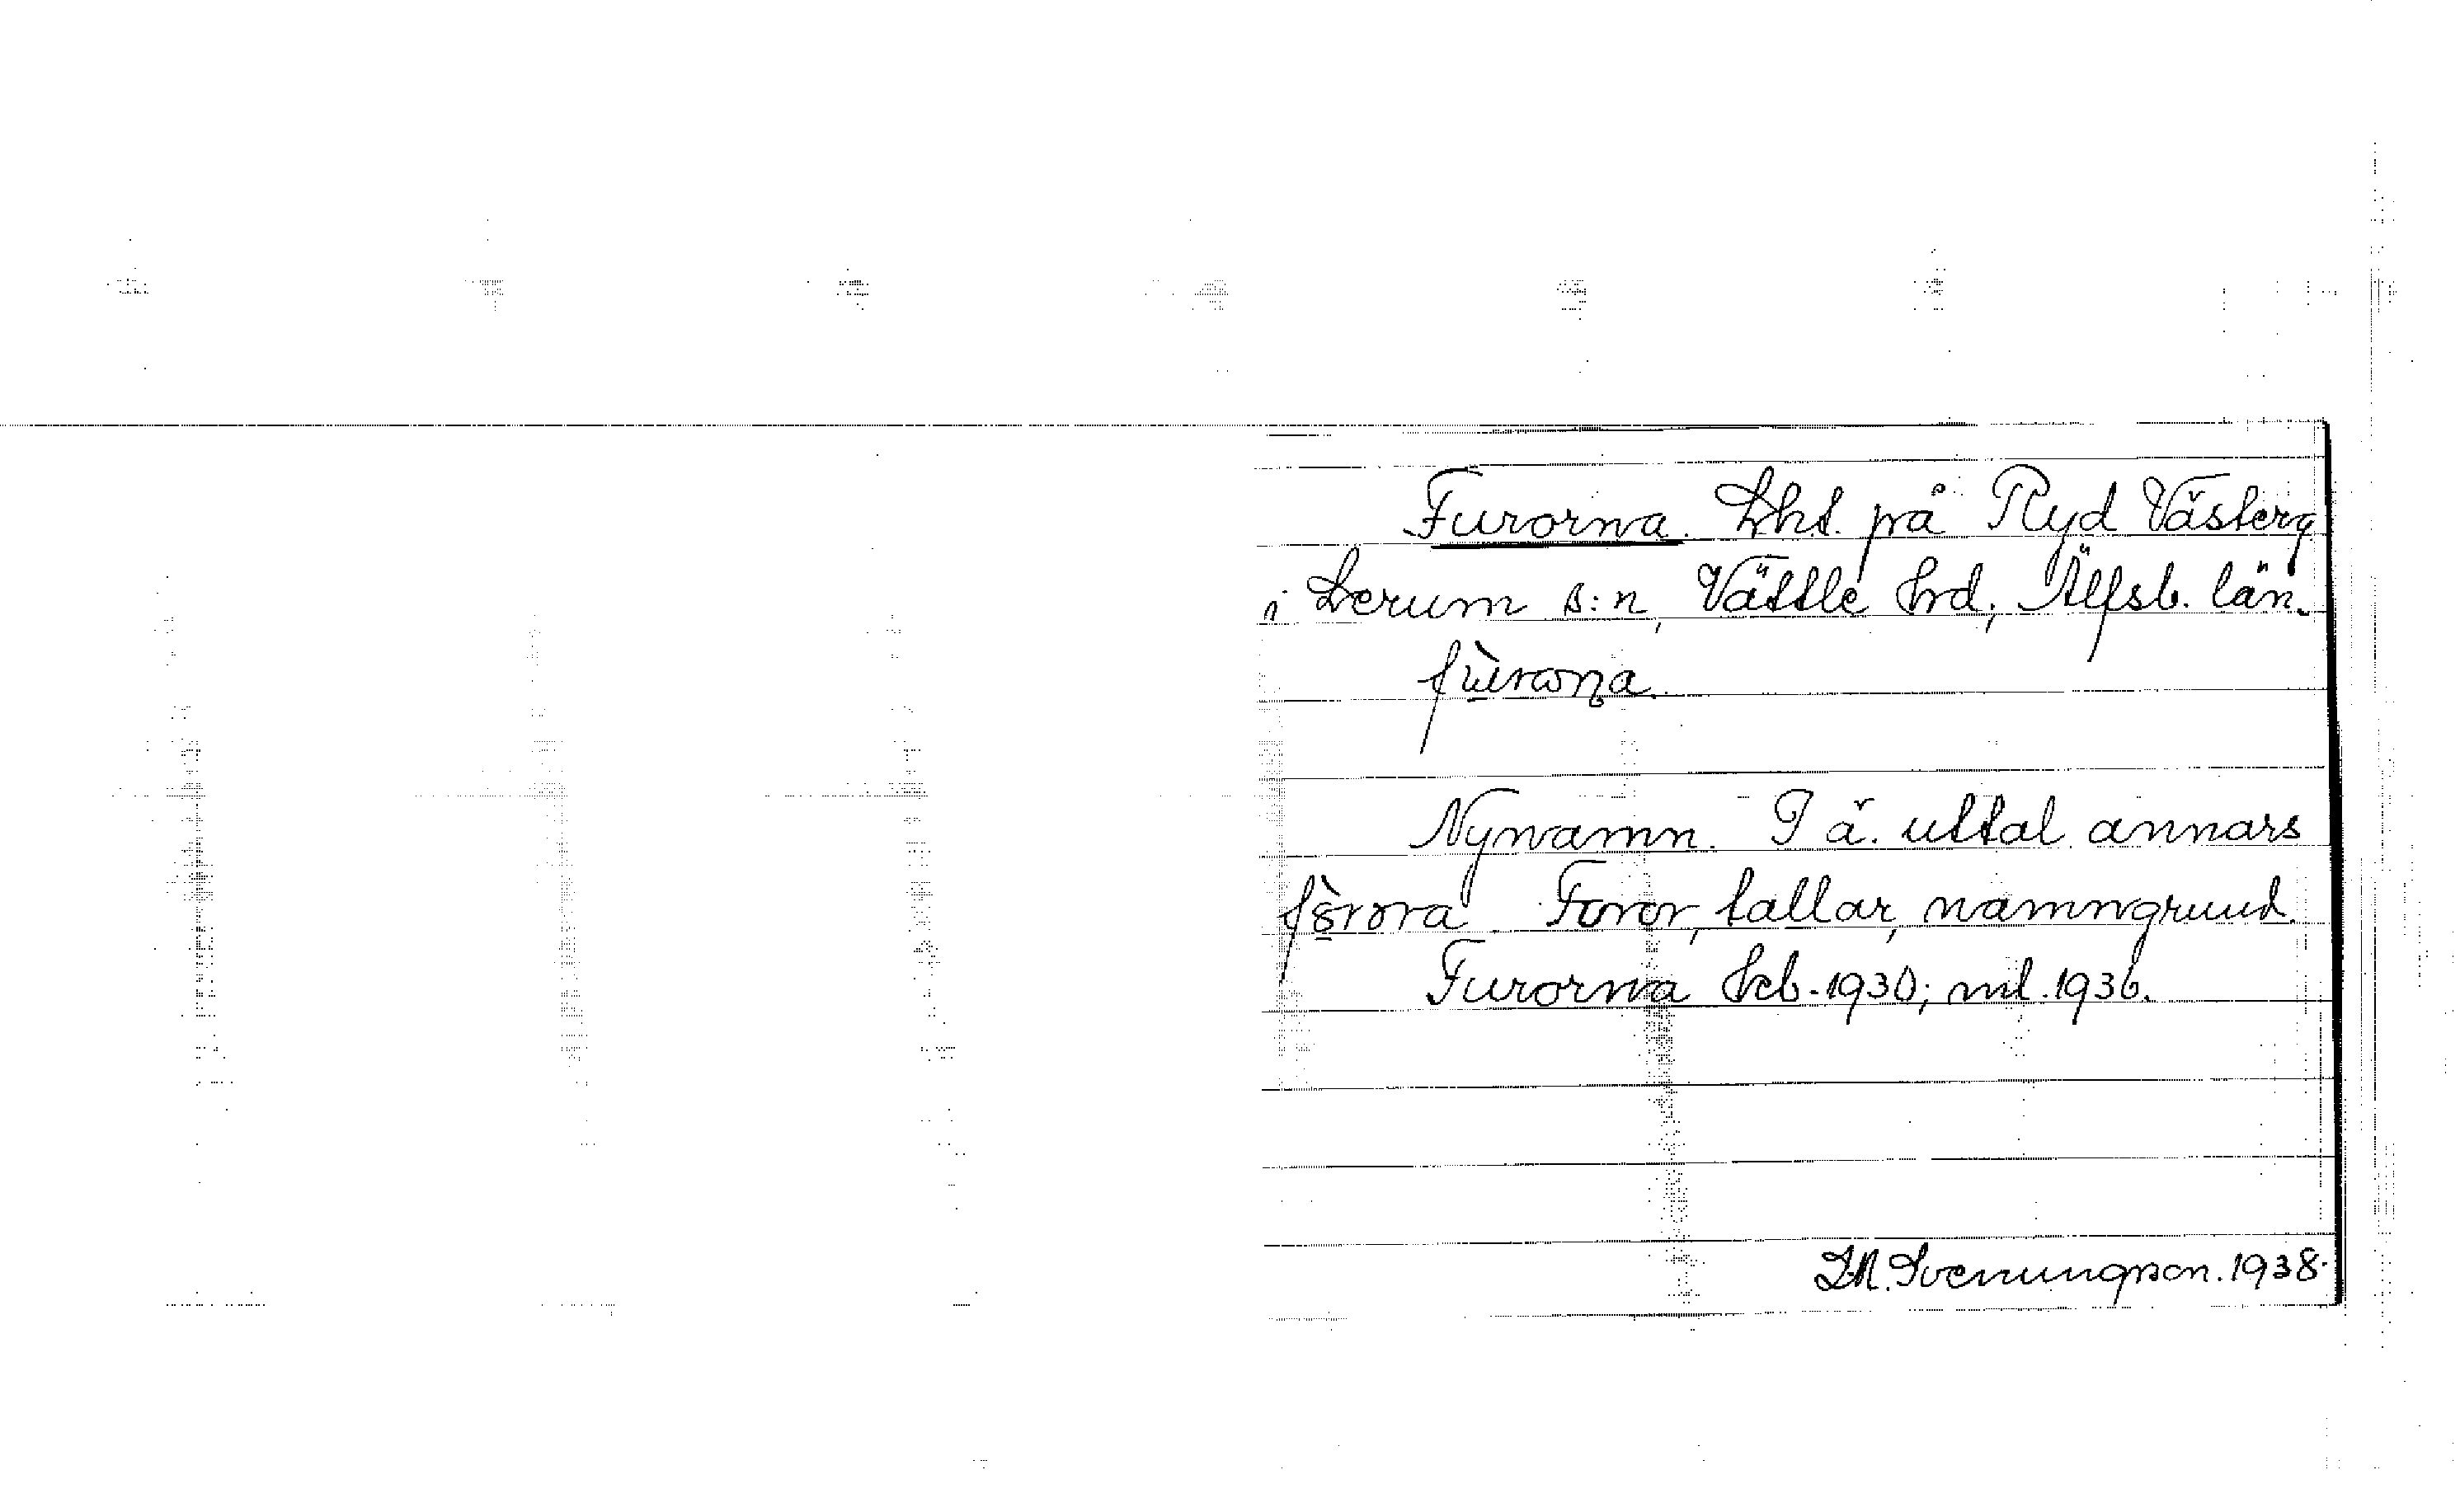 Furorna. Lht. på Ryd Västerg.
i Lerum s:n, Vättle hrd, Älfsb. län.
fùrona.
Nynamn. I ä. uttal annars
fòrora. Foror, tallar, namngrund.
Furorna hcb. 1930; ml. 1936.
I.M. Svenungson. 1938.